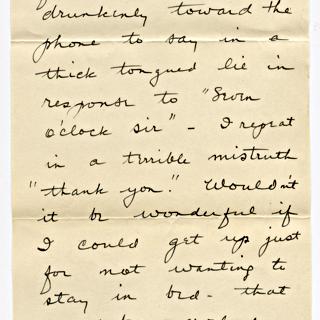 drunkenly toward the
phone to say in a
thick tongued lie in
response to "Seven
o'clock sir" - I repeat
in a terrible mistruth
"thank you." Wouldn't
it be wonderful if
I could get up just
for not wanting to
stay in bed - that